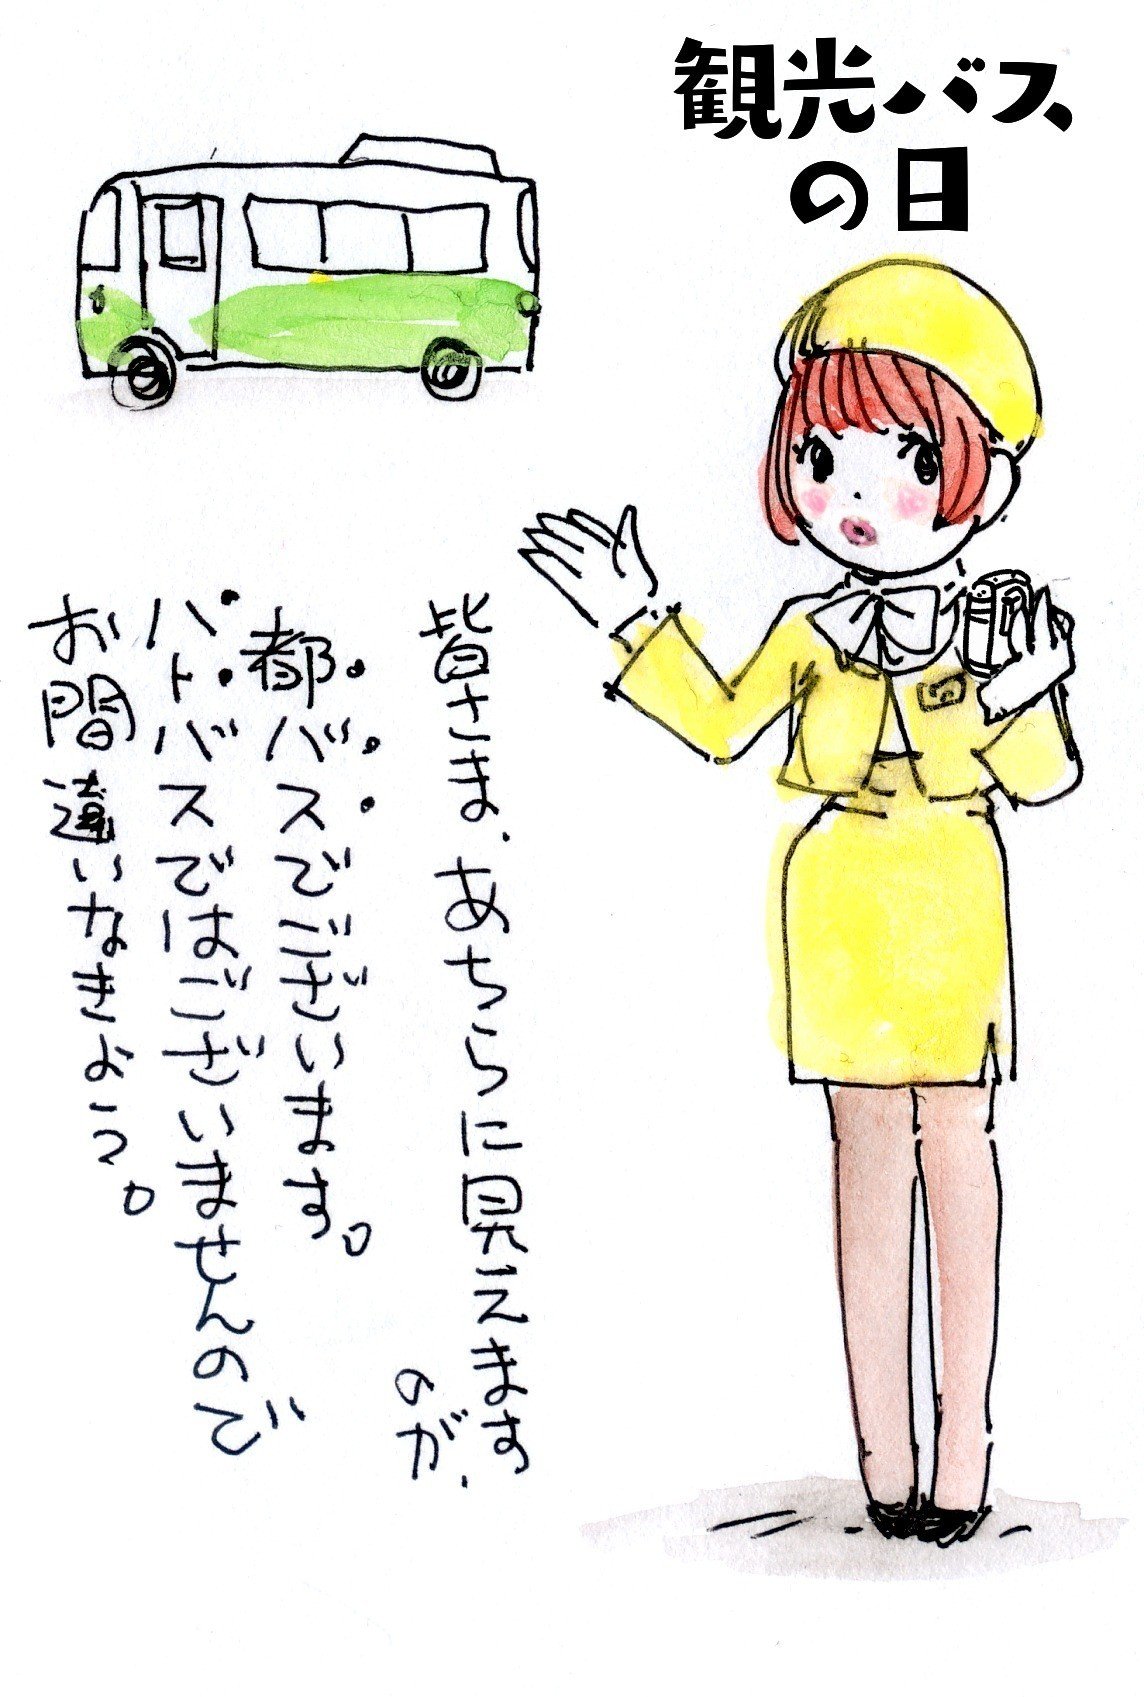 観光バス
の日
皆さま、あちらに見えます
のが、
都バスでございます。
ハトバスではございませんので
お間違いなきよう。